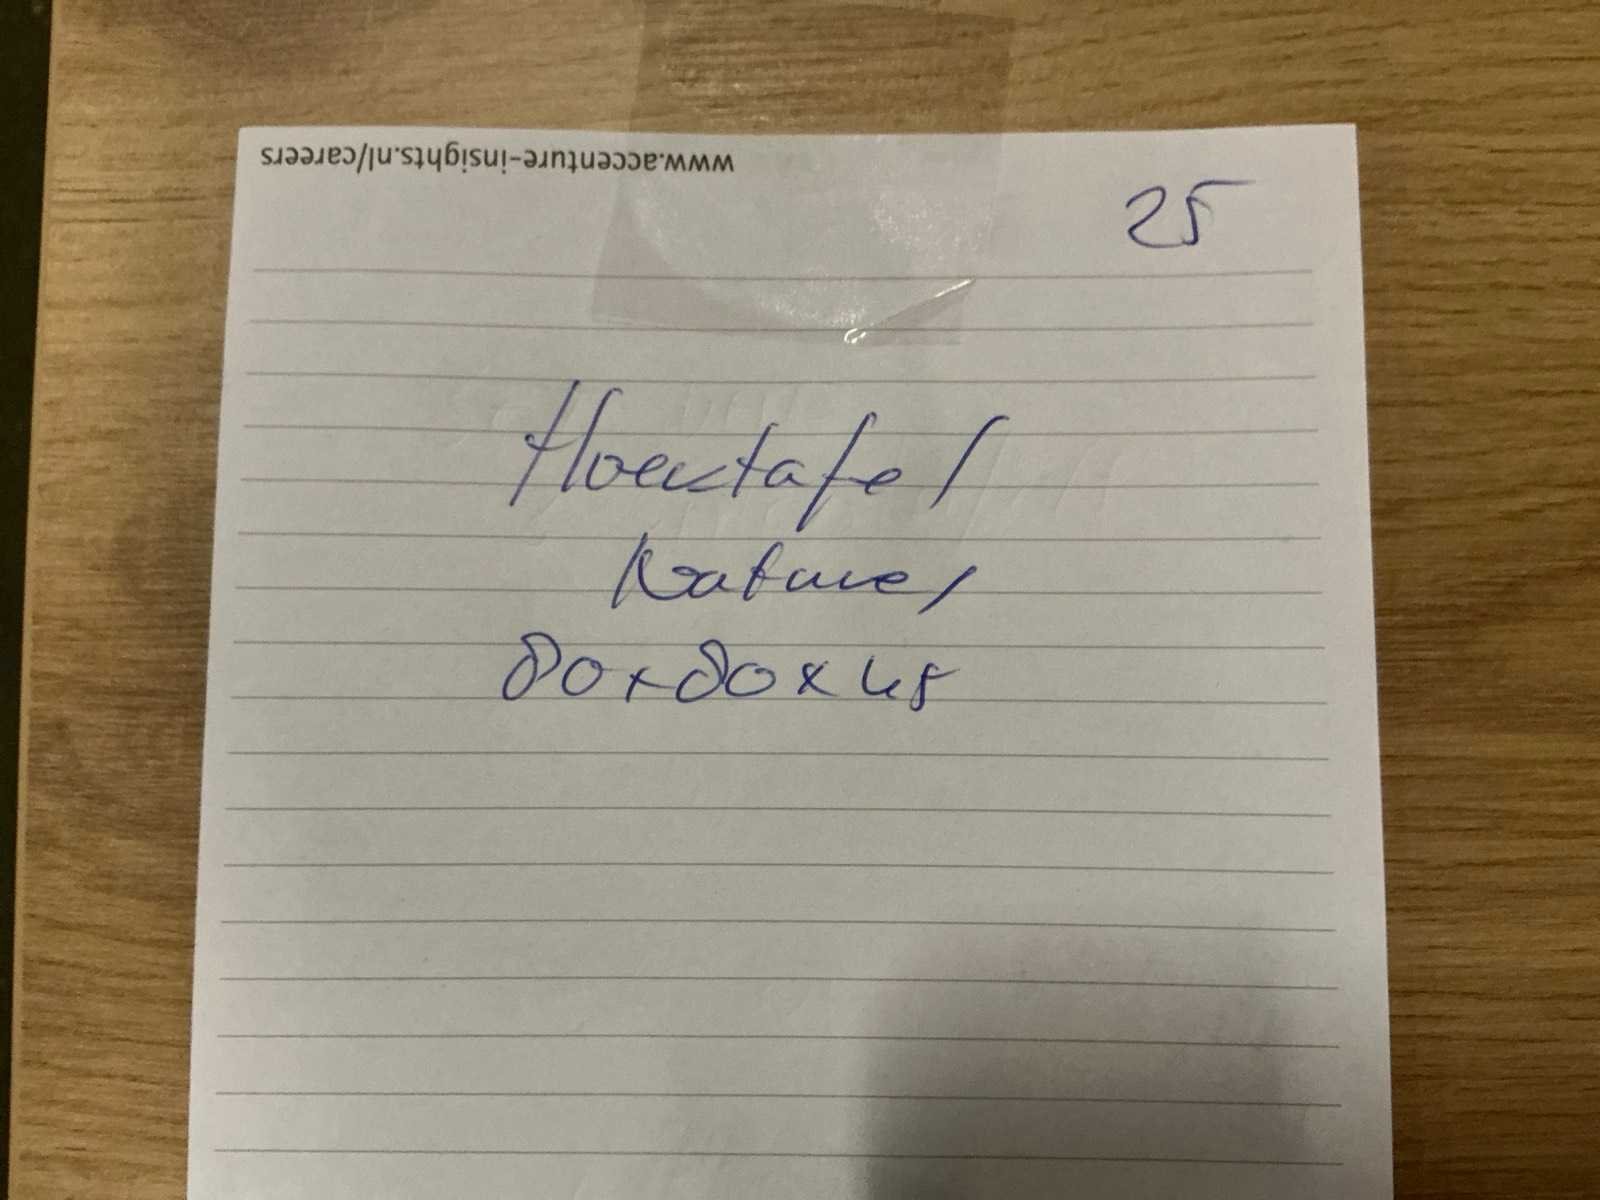 www.accenture-insights.nl/careers
25
Hoektafel
Naturel
80x80x45